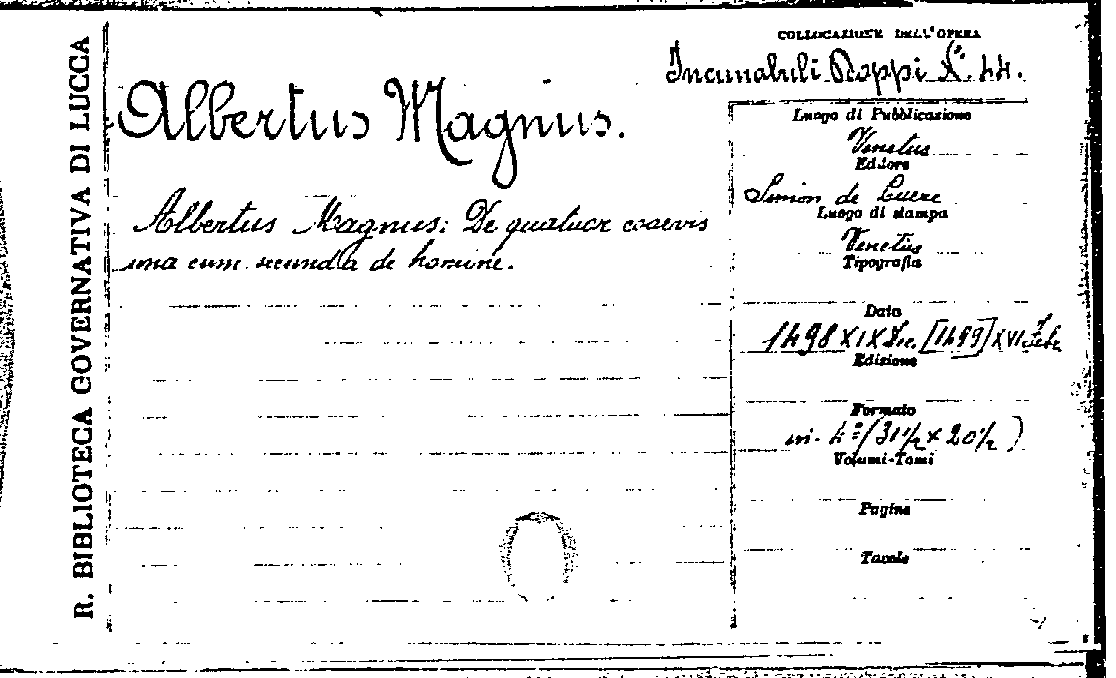 R. BIBLIOTECA GOVERNATIVA DI LUCCA
COLLOCAZIONE DELL'OPERA
Incunabuli. N.° 44.
Albertus Magnus.
Albertus Magnus: De quatuor coaevis
una cum secunda de homine.
Luogo di Pubblicazione
Venetus
Editore
Simon de Luere
Luogo di stampa
Venetus
Tipografia
Data
1498 XIX Dic. [1499] XVI Feb
Edizione
Formato
in-4º (31½ x 20½)
Volumi-Tomi
Pagine
Tavole